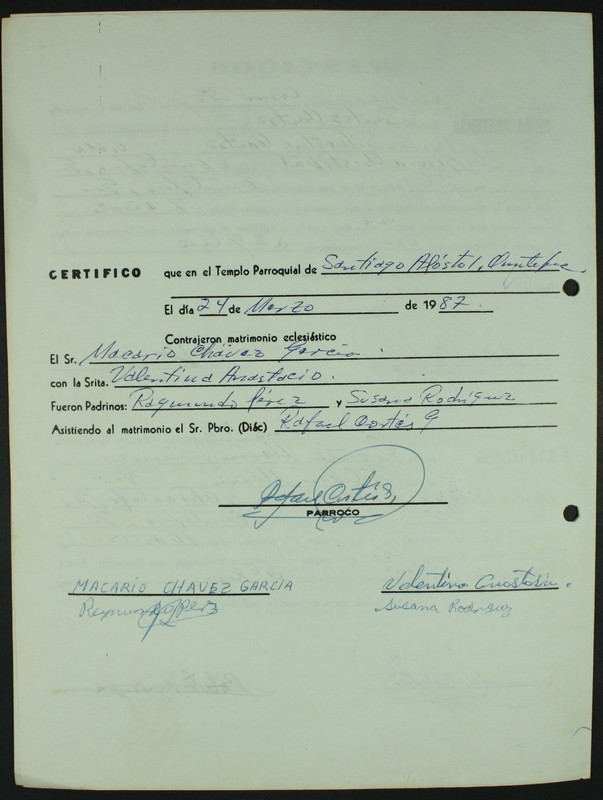 CERTIFICO que en el Templo Parroquial de Santiago Apóstol,
El día 24 de Marzo de 1987.
Contrajeron matrimonio eclesiástico
El Sr. Macario Chávez García
con la Srita. Valentina Anastacio.
Fueron Padrinos: Raymundo Pérez y Susana Rodríguez
Asistiendo al matrimonio el Sr. Pbro. (Diác) Rafael Cortés G
Rafael Cortés G
PARROCO
MACARIO CHAVEZ GARCIA Valentina Anastacio.
Raymundo Perez Susana Rodriguez